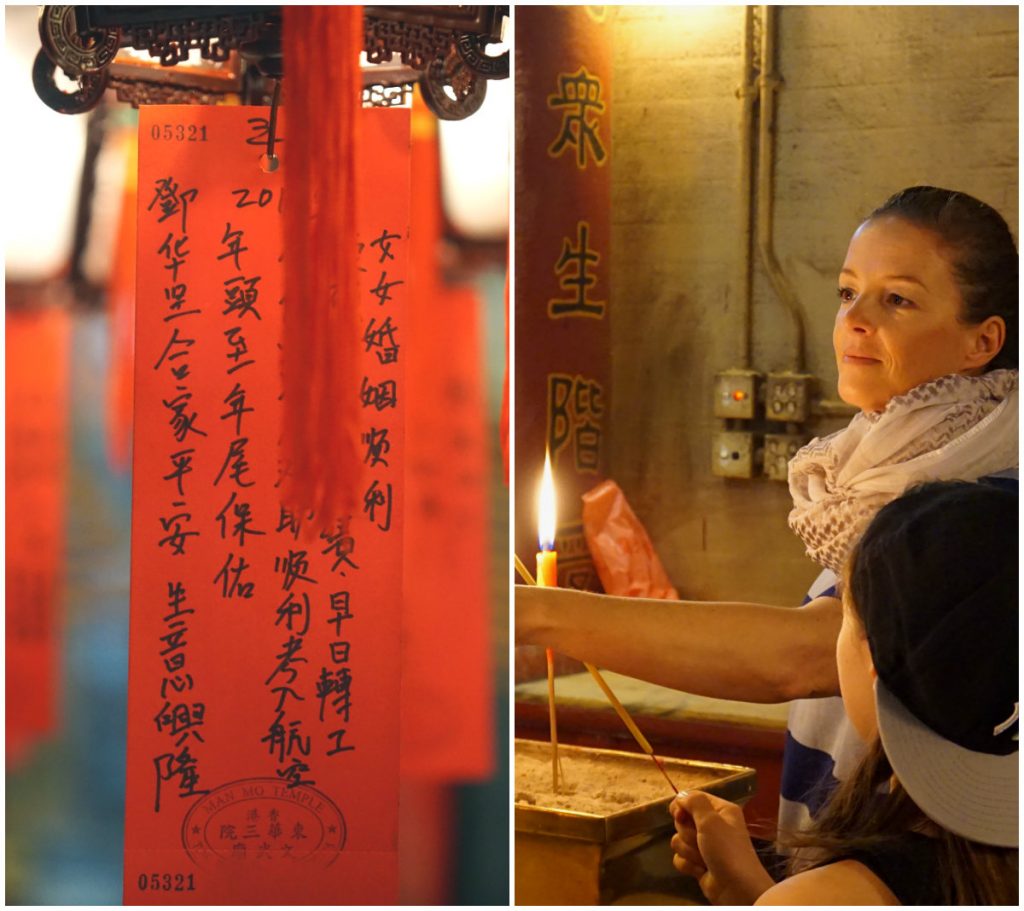 05321
女女婚姻順利
早日轉工
助順利考入航空
201
年頭至年尾保佑
鄧华 合家平安 生意興隆
MAN MO TEMPLE
香港
東華三院
文武廟
05321
眾生階